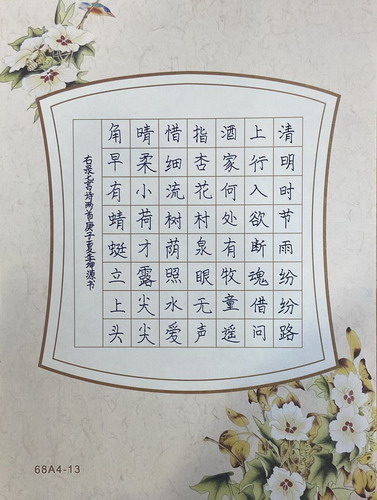 清明时节雨纷纷路
上行人欲断魂借问
酒家何处有牧童遥
指杏花村泉眼无声
惜细流树荫照水爱
晴柔小荷才露尖尖
角早有蜻蜓立上头
右录七言诗两首庚子夏源书
68A4-13